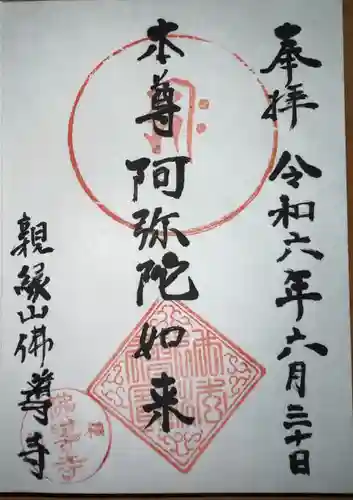 奉拝 令和六年六月三十日
本尊 阿弥陀如来
親縁山佛尊寺